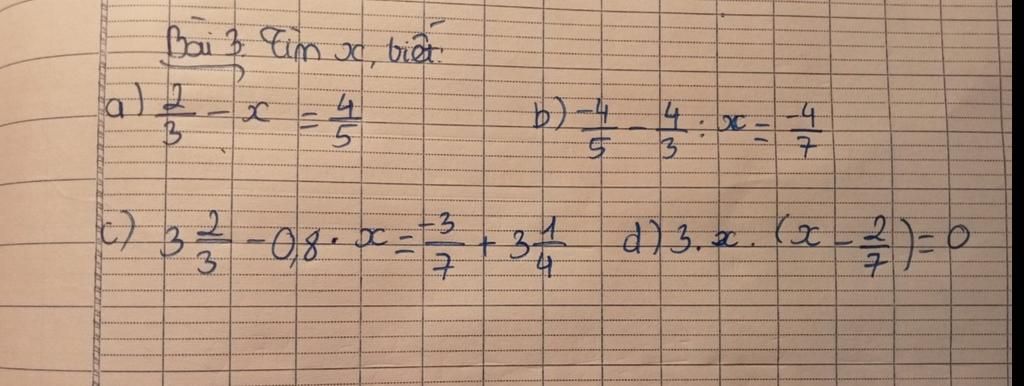 Bài 3. Tìm x, biết:
a) 2/3 - x = 4/5 b) -4/5 - 4/3 : x = -4/7
c) 3 2/3 - 0,8 . x = -3/7 + 3 1/4 d) 3. x . (x - 2/7) = 0